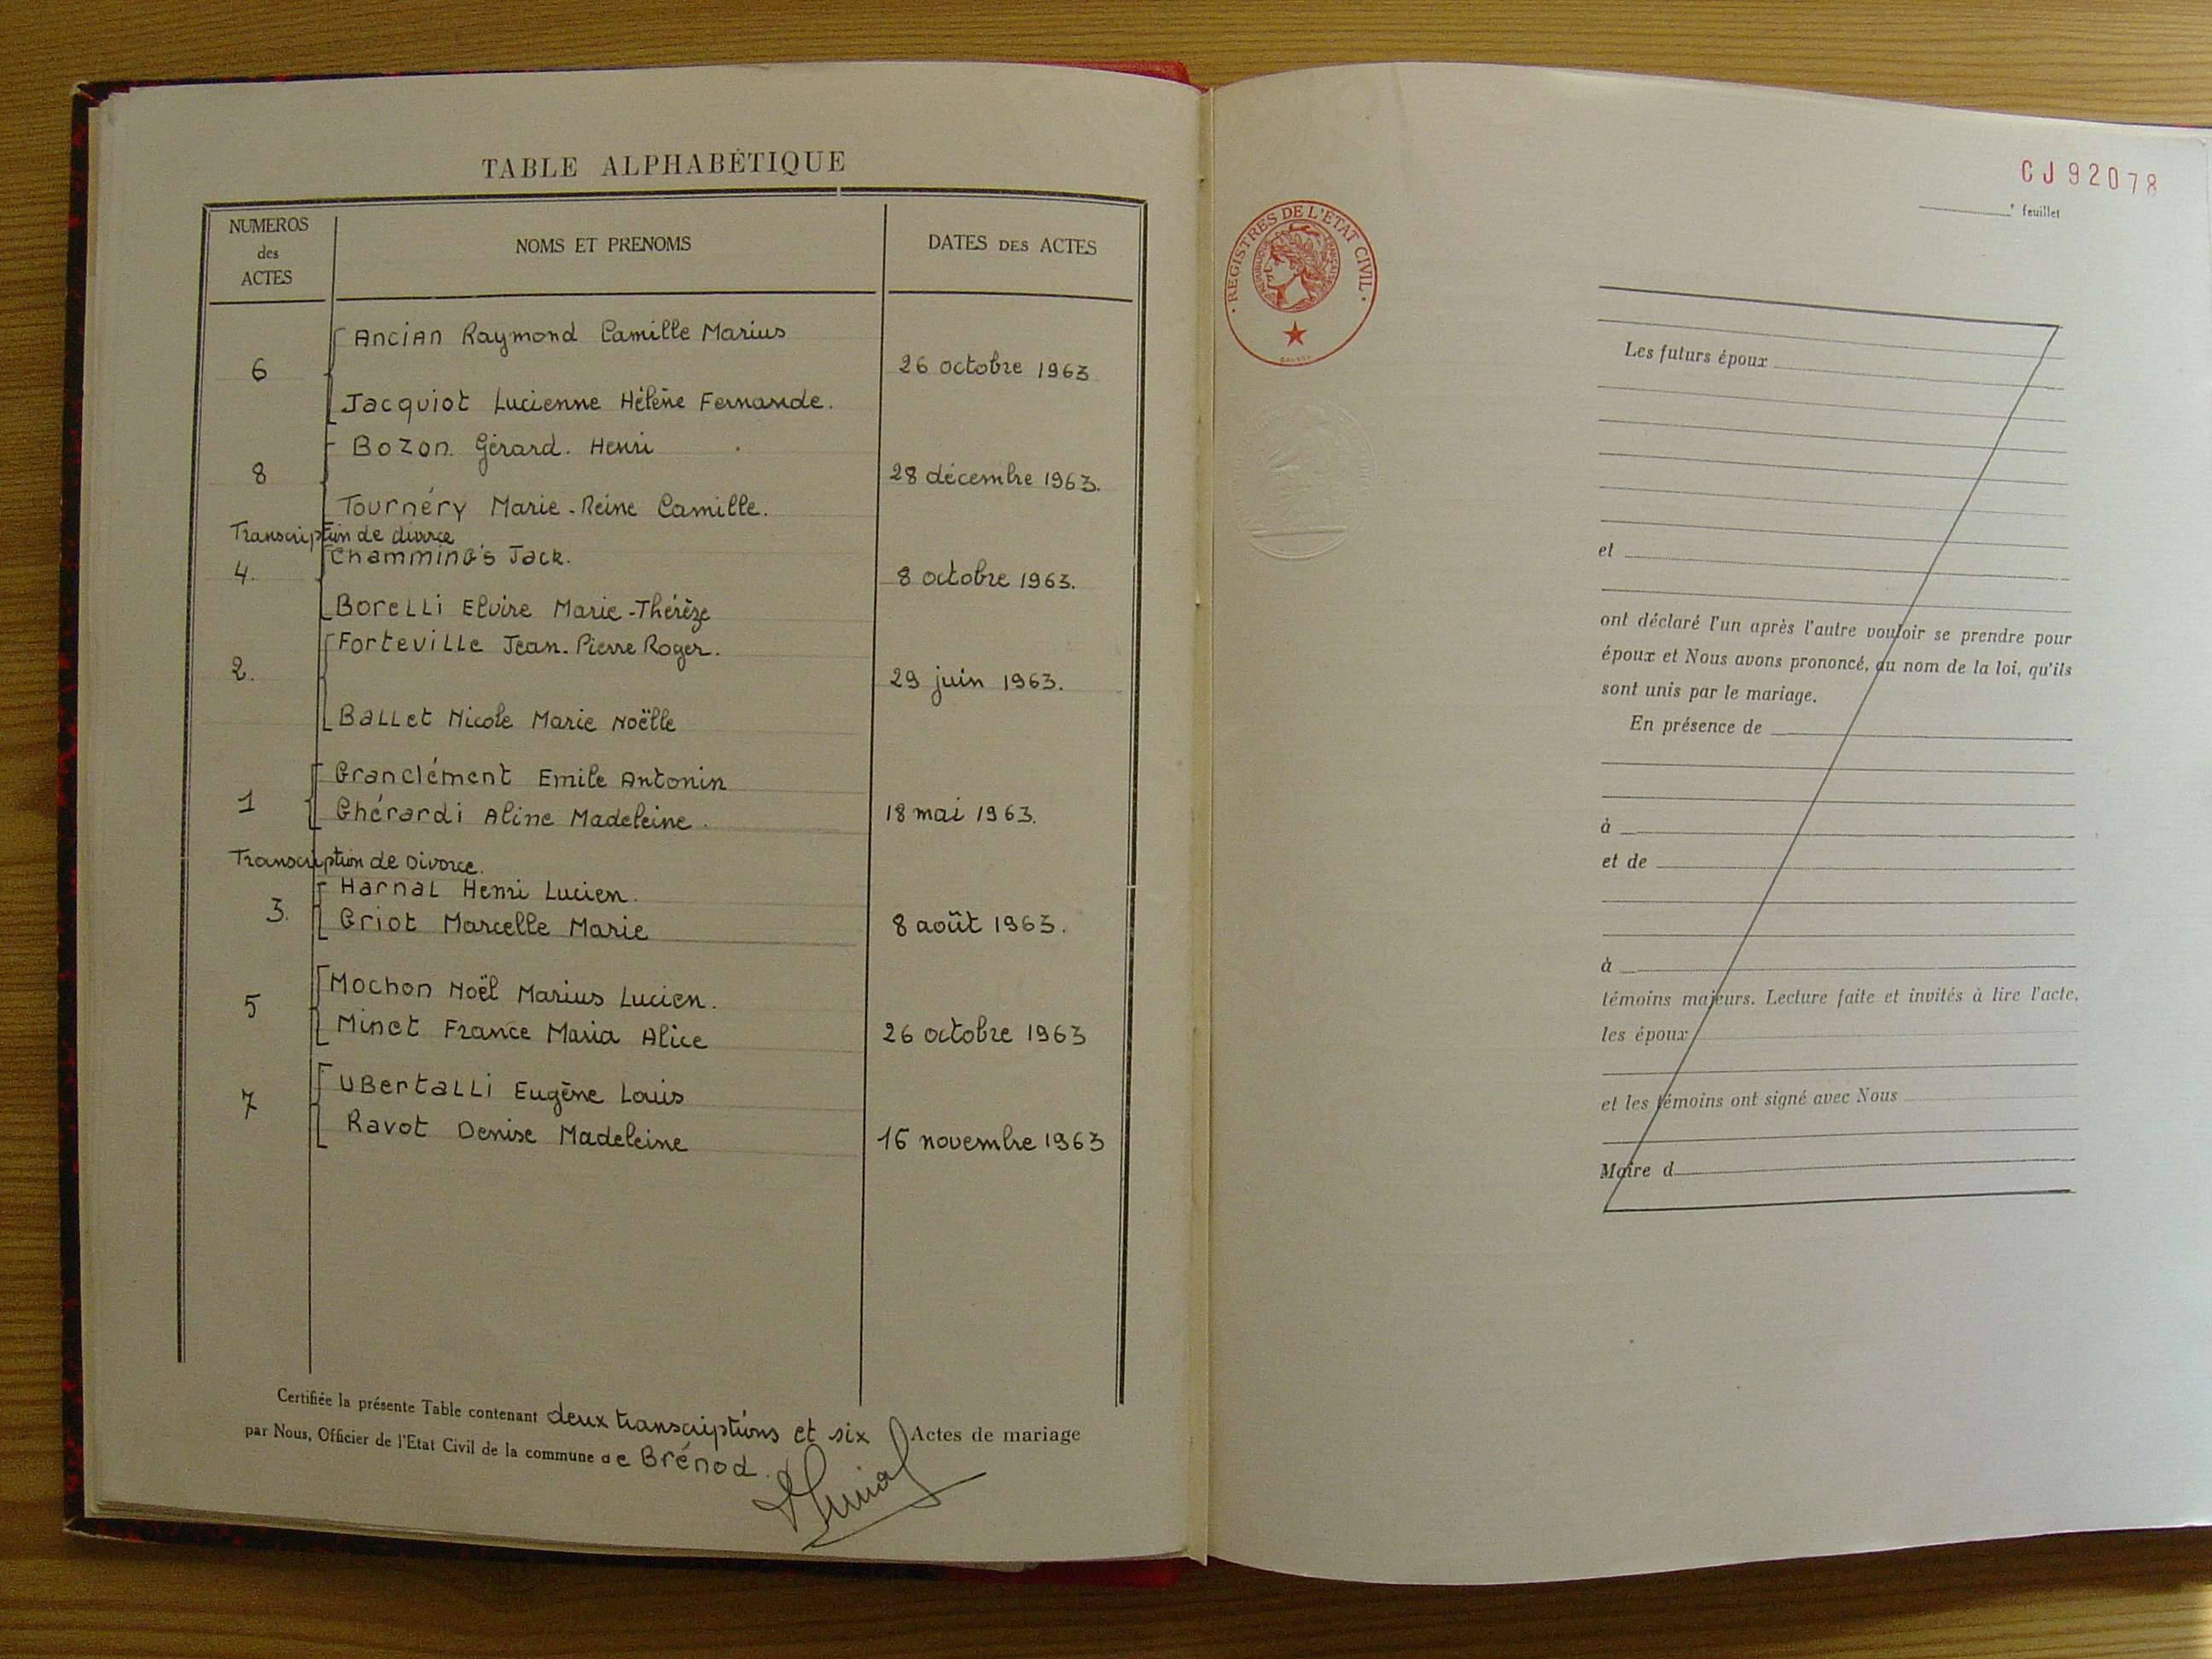 TABLE ALPHABÉTIQUE
NUMEROS
des
ACTES
NOMS ET PRENOMS
DATES DES ACTES
Ancian Raymond Camille Marius
6
26 octobre 1963
Jacquiot Lucienne Hélène Fernande.
Bozon. Gérard. Henri
8
28 décembre 1963.
Tournéry Marie-Reine Camille.
Transcription de divorce
Chamming's Jack.
4.
8 octobre 1963.
Borelli Elvire Marie-Thérèze
Forteville Jean-Pierre Roger.
2.
29 juin 1963.
Ballet Nicole Marie Noëlle
Granclément Emile Antonin
1
18 mai 1963.
Ghérardi Aline Madeleine.
Transcription de Divorce.
Harnal Henri Lucien.
3.
8 août 1963.
Griot Marcelle Marie
Mochon Noël Marius Lucien.
5
Minet France Maria Alice
26 octobre 1963
Ubertalli Eugène Louis
7
Ravot Denise Madeleine
16 novembre 1963
Certifiée la présente Table contenant deux transcriptions et six Actes de mariage
par Nous, Officier de l'Etat Civil de la commune de Brénod.
CJ 92078
e feuillet
· REGISTRES DE L'ÉTAT CIVIL ·
RÉPUBLIQUE FRANÇAISE
Les futurs époux
et
ont déclaré l'un après l'autre vouloir se prendre pour
époux et Nous avons prononcé, au nom de la loi, qu'ils
sont unis par le mariage.
En présence de
à
et de
à
témoins majeurs. Lecture faite et invités à lire l'acte,
les époux
et les témoins ont signé avec Nous
Maire d